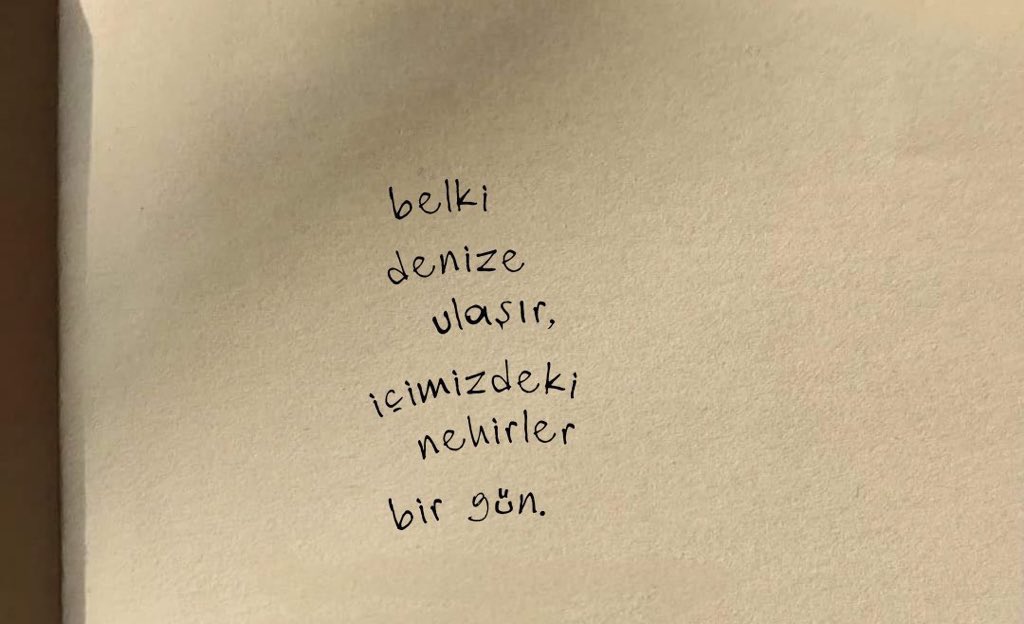 belki
denize
ulaşır,
içimizdeki
nehirler
bir gün.